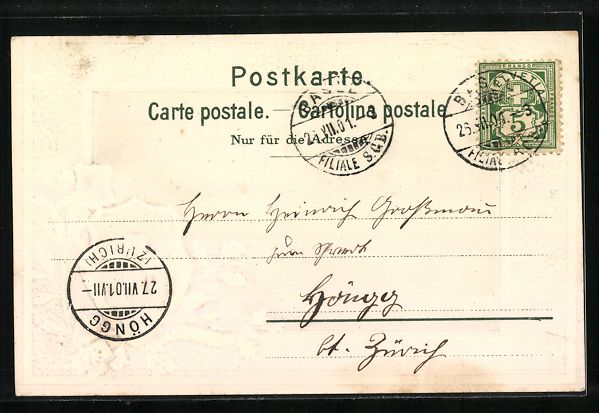 Postkarte.
Carte postale. Cartolina postale
Nur für die Adresse
BASEL
VII.01.
FILIALE S.C.B.
HELVETIA
FRANCO
5
FILIALE
Herrn Heinrich Großmann
zum
Höngg
Kt. Zürich
(ZÜRICH)
27.VII.01.VII-
HÖNGG